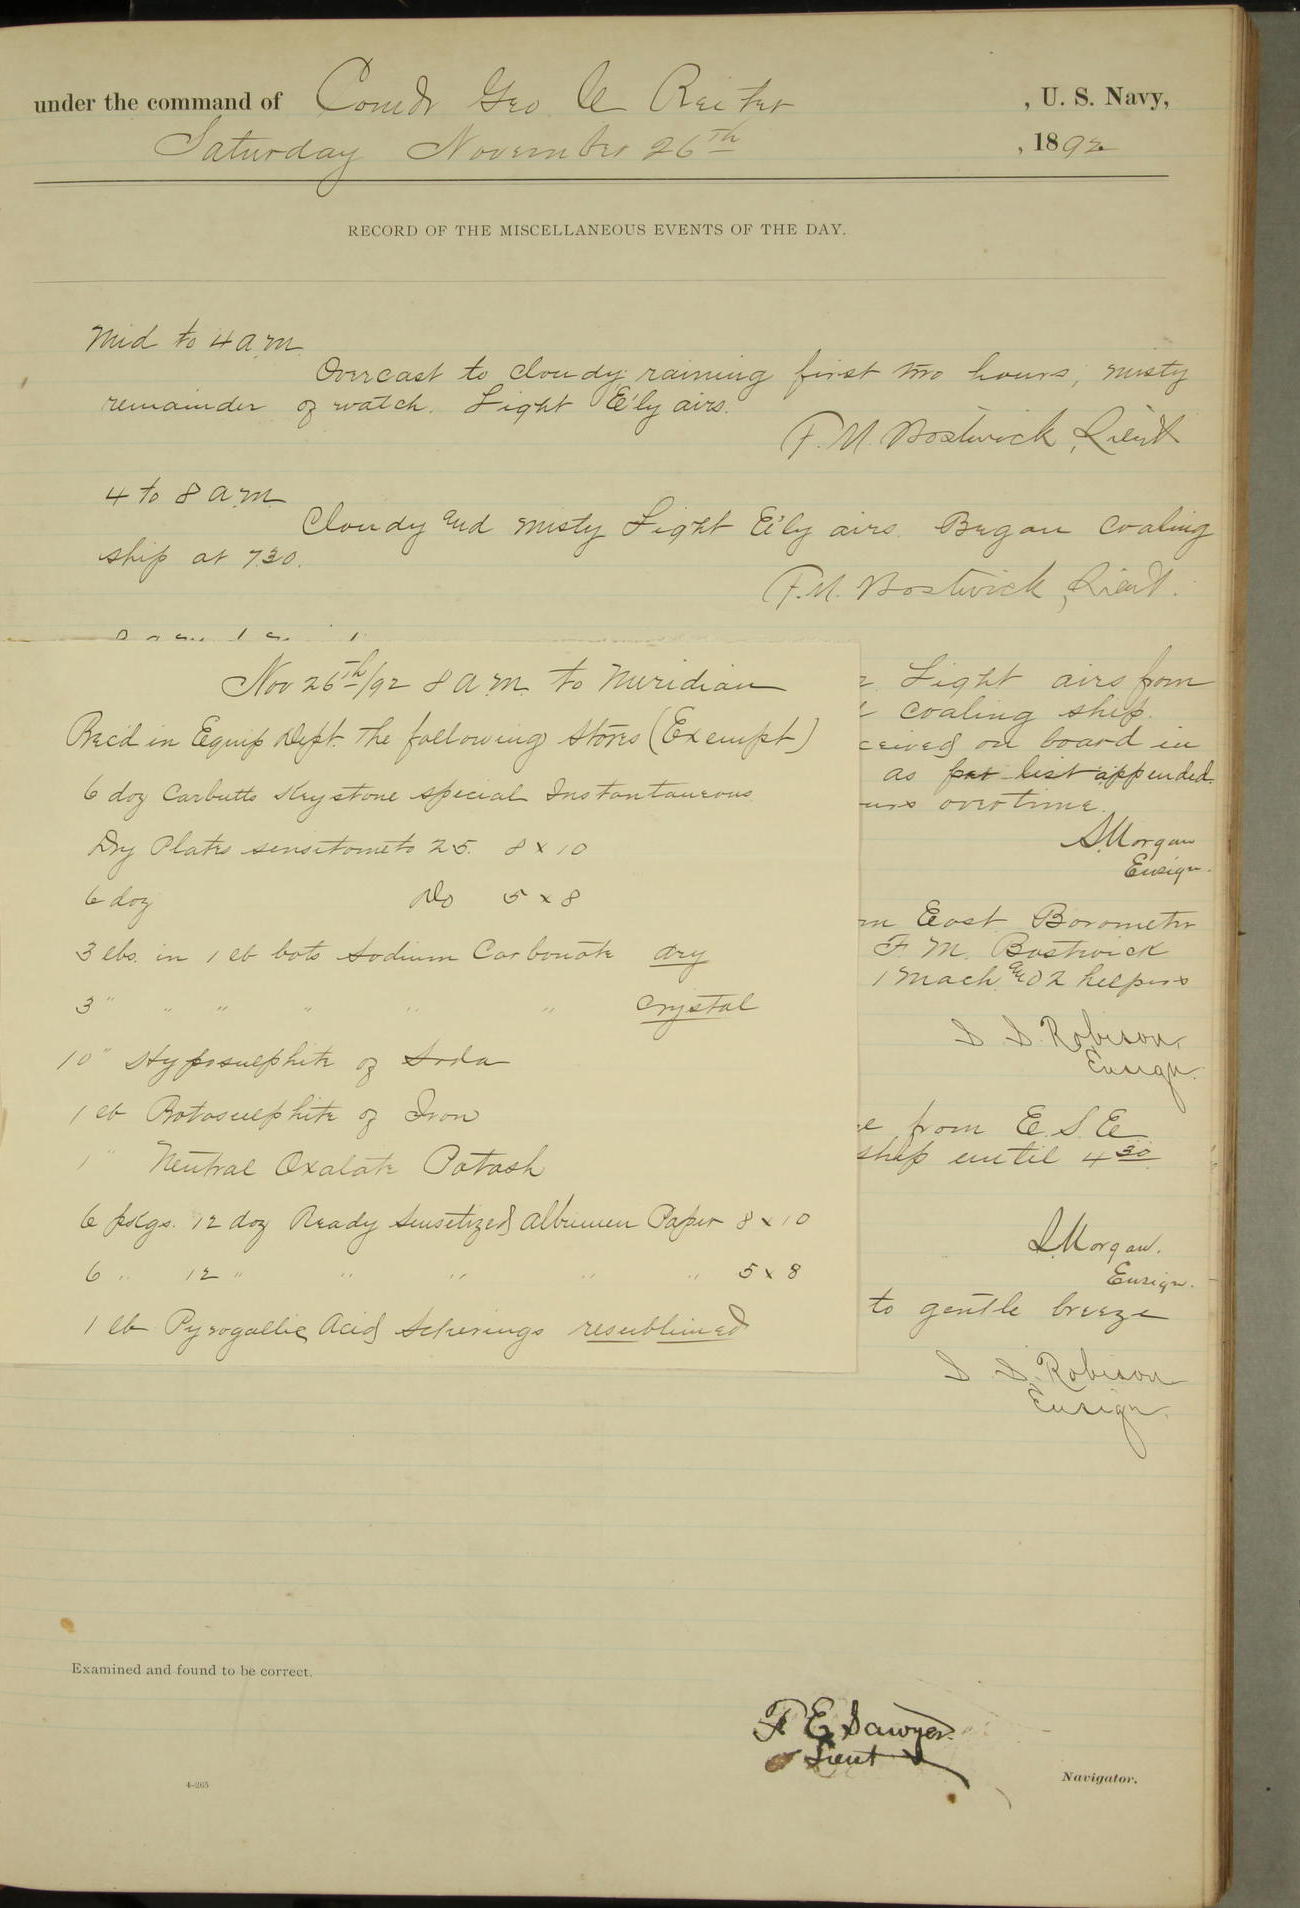 under the command of Comdr Geo. C. Reiter , U. S. Navy,
Saturday November 26th , 1892
RECORD OF THE MISCELLANEOUS EVENTS OF THE DAY.
Mid to 4 a.m.
Overcast to cloudy; raining first two hours, misty
remainder of watch. Light E'ly airs.
F. M. Bostwick, Lieut
4 to 8 a.m.
Cloudy and misty Light E'ly airs. Began coaling
ship at 7.30.
F. M. Bostwick, Lieut.
Nov 26th/92 8 a.m. to Meridian
Rec'd in Equip Dept. the following stores (Exempt)
6 doz Carbutts Keystone special Instantaneous
Dry Plates sensitometo 25. 8 x 10
6 doz Do 5 x 8
3 lbs. in 1 lb bots Sodium Carbonate dry
3 " " " " " " Crystal
10 " Hyposulphite of Soda
1 lb Protosulphite of Iron
1 " Neutral Oxalate Potash
6 pkgs. 12 doz Ready Sensetized Albumen Paper 8 x 10
6 " 12 " " " " " 5 x 8
1 lb Pyrogallic Acid Scherings resublimed
Light airs from
coaling ship.
on board in
as per list appended.
overtime.
S. Morgan
Ensign.
East. Barometer
F. M. Bostwick
1 Mach. and 2 helpers
S. S. Robison,
Ensign.
from E.S.E.
ship until 4.30
S. Morgan.
Ensign.
to gentle breeze
S. S. Robison
Ensign.
Examined and found to be correct.
F. E. Sawyer.
Lieut
4-265
Navigator.